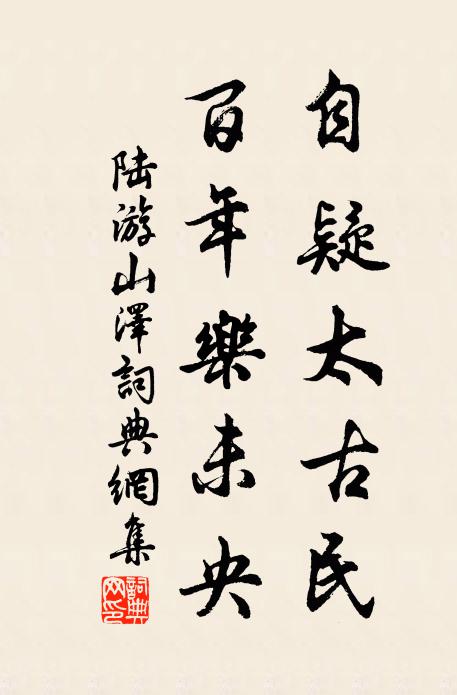 自疑太古民
百年樂未央
陆游山澤詞典網集
詞典网印